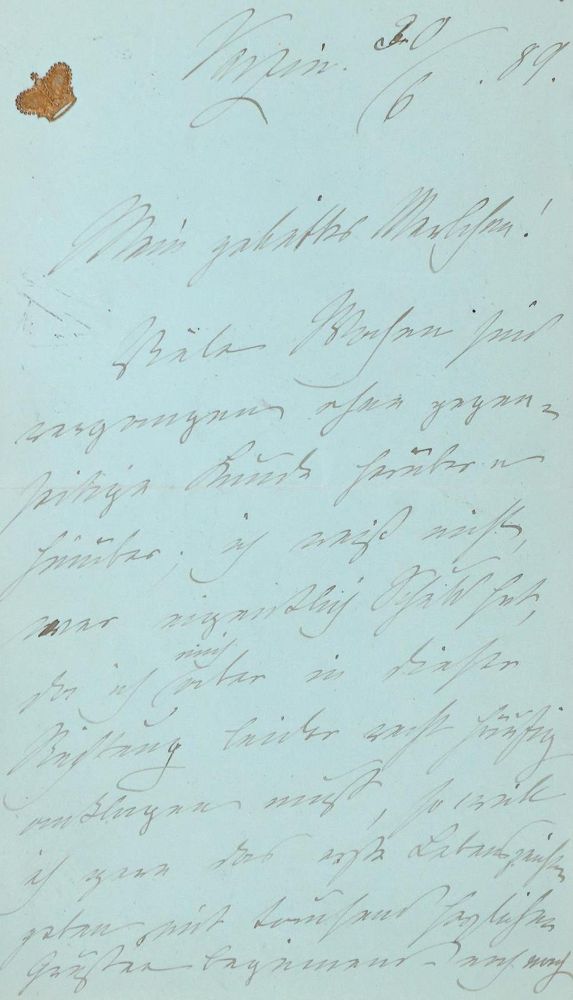 Varzin. 20/6. 89.
Mein geliebtes Malchen!
Viele Wochen sind
vergangen ohne gegen-
seitige Kunde herüber u
hinüber; ich weiß nicht,
wer eigentlich Schuld hat,
da ich mich aber in dieser
Richtung leider recht häufig
anklagen muß, so will
ich gern das erste Lebenszeichen
geben mit tausend herzlichen
Grüßen beginnend